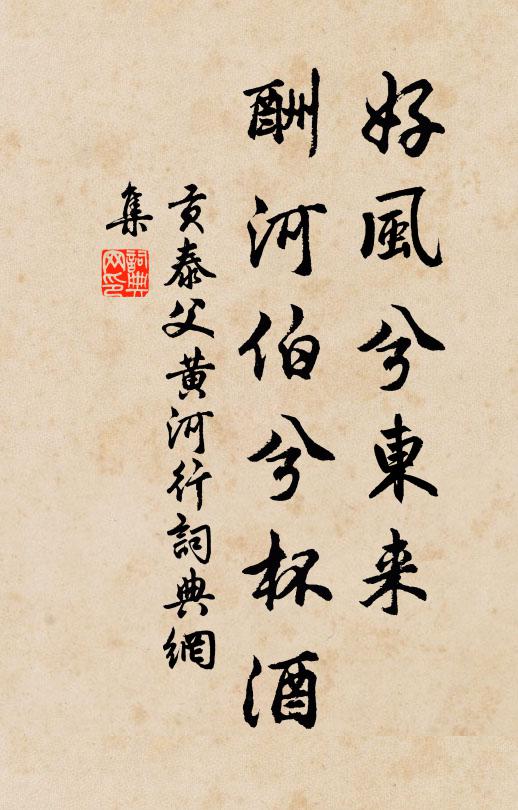 好風兮東来
酬河伯兮杯酒
贡泰父黄河行詞典網
集
詞典
网印